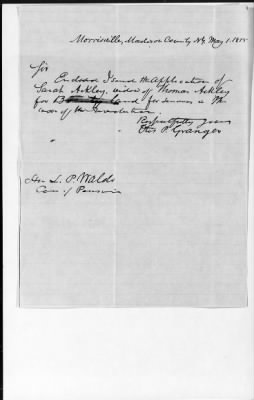 Morrisville, Madison County NY. May 1. 1855
Sir
Enclosed I send the application of
Sarah Ackley, widow of Thomas Ackley
for Bounty land for services in the
war of the Revolution
Respectfully yours
Otis P. Granger
Hon L. P. Waldo
Com of Pensions